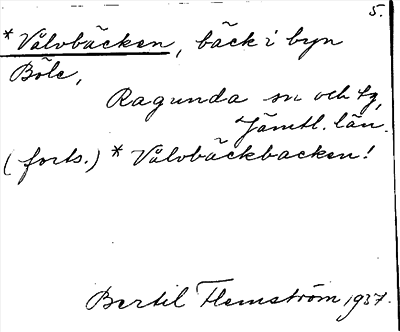 5.
*Valvbäcken, bäck i byn
Böle,
Ragunda sn och tg,
Jämtl. län.
(forts.) * Valvbäckbacken!
Bertil Flemström 1937.